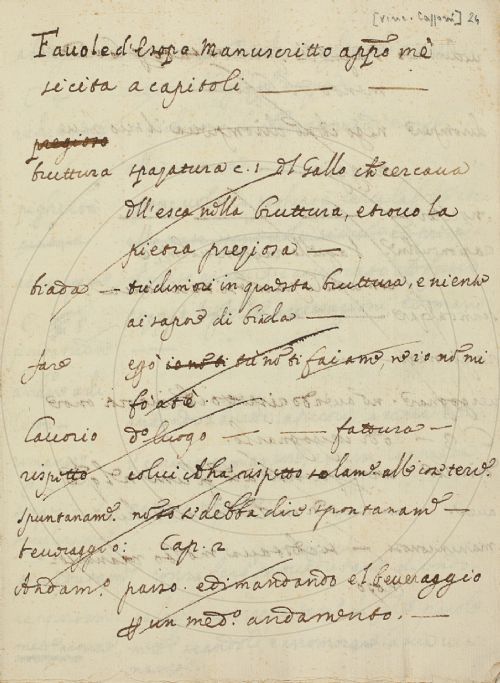 [Vinc. Capponi] 24
Fauole d'Esopo Manuscritto app.o me
si cita a capitoli
pregioso
bruttura spazatura c. 1 del Gallo che cercaua
dell'esca nella bruttura, e trouo la
pietra preziosa
biada tu dimori in questa bruttura, e niente
ai sapore di biada
fare eppò io non ti tu non ti fai a me, ne io non mi
fo a te
Lauorio d.o luogo fattura
rispetto colui che ha rispetto solam.e alle cose terre.
spuntanam.e no so se debba dire spontanam.e
beueraggio: Cap. 2
Andam.o passo. e dimandando el beueraggio
un med.o andamento.